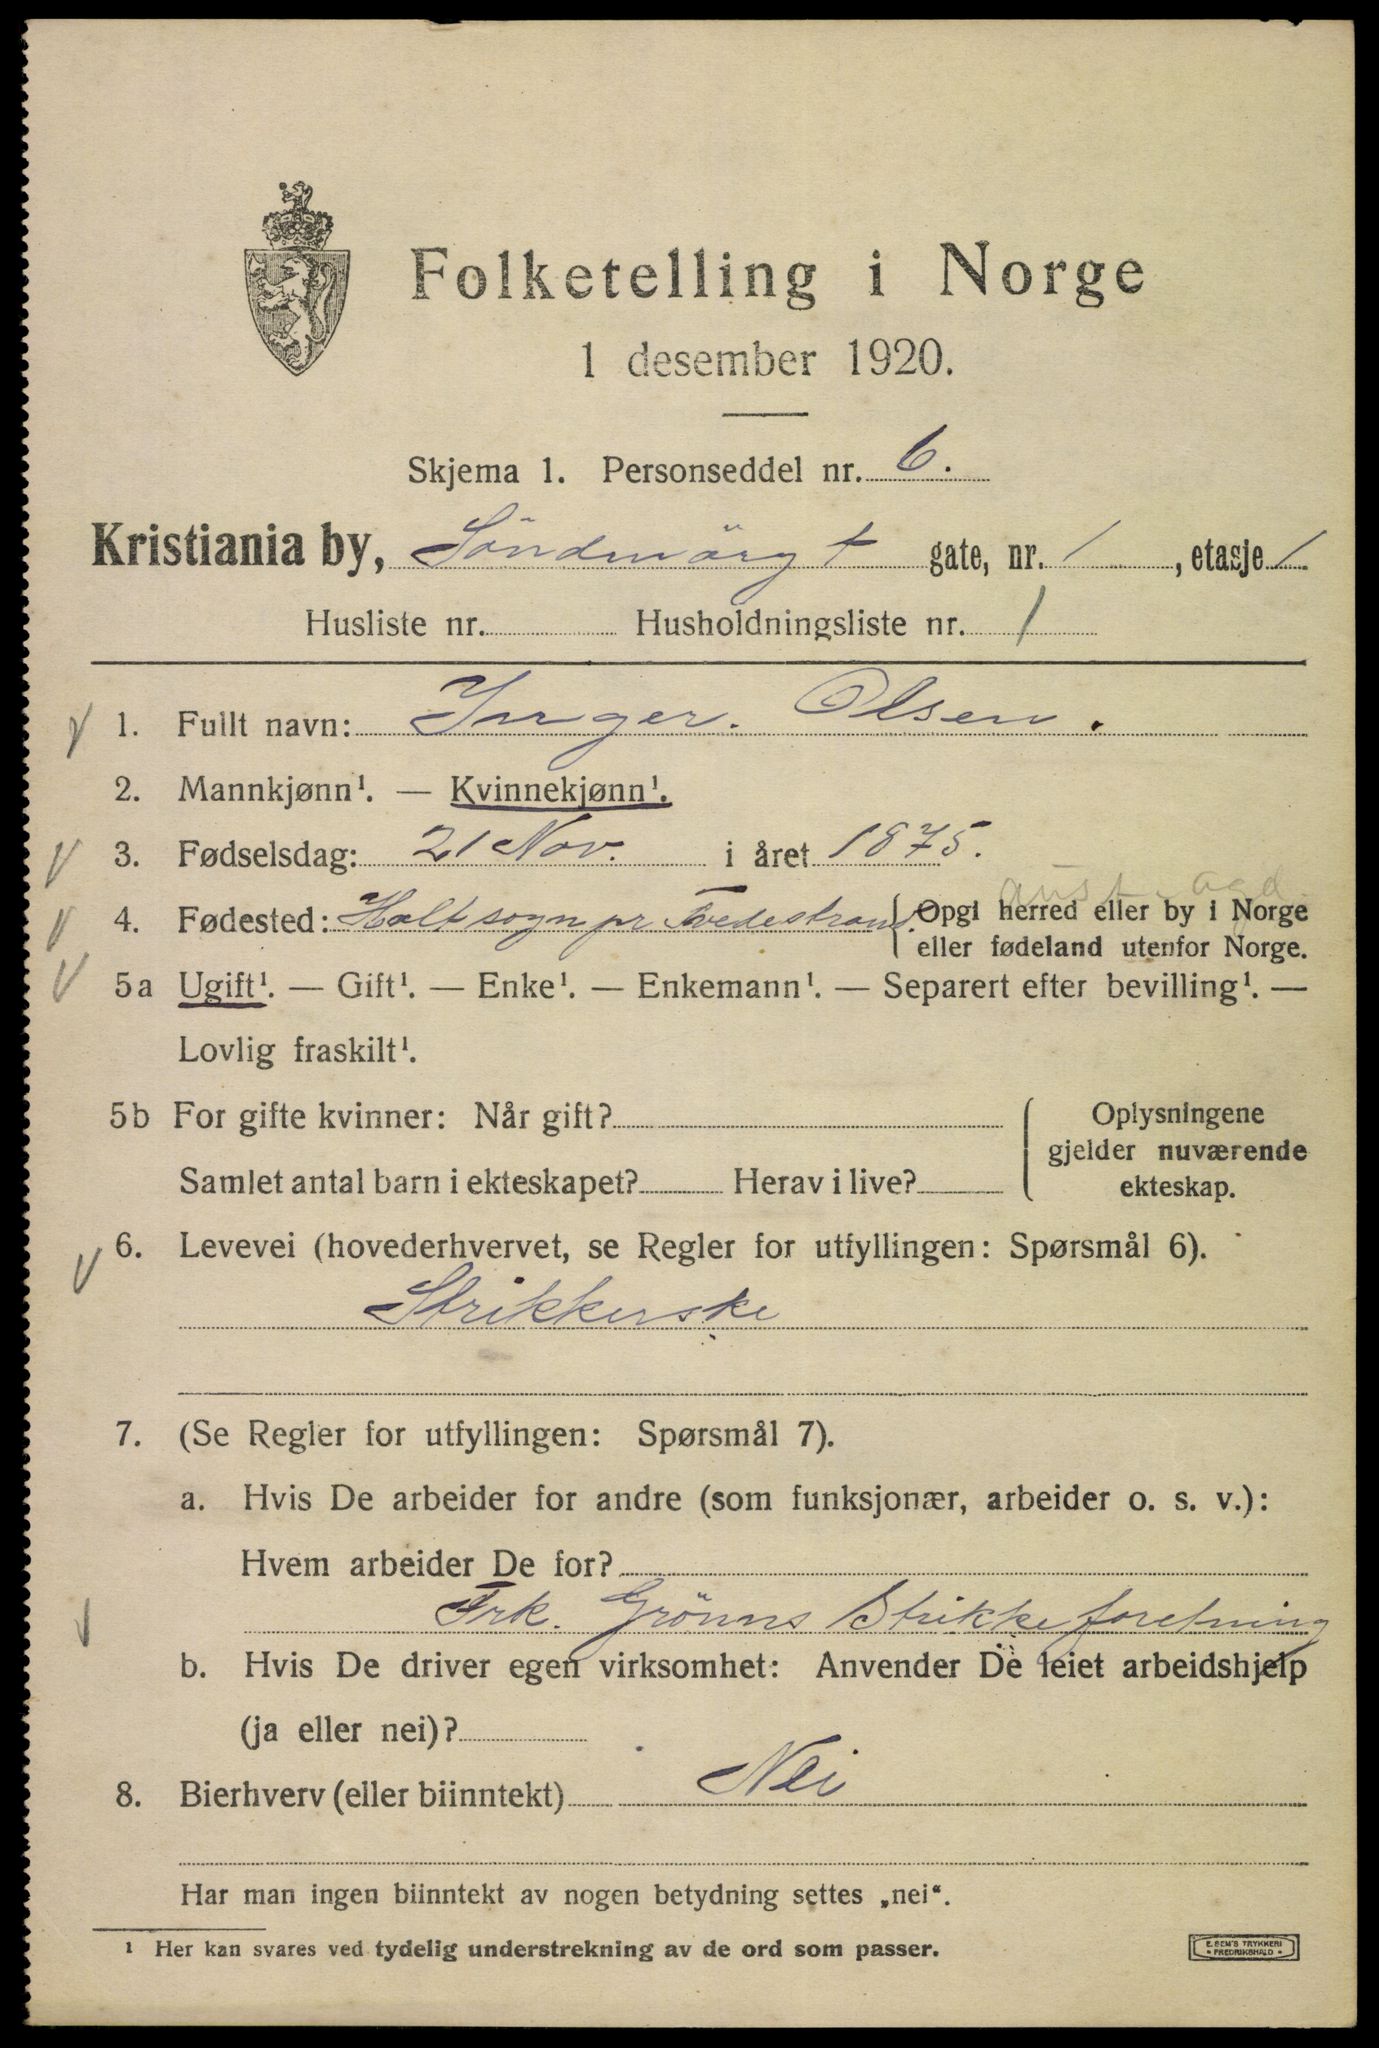 Folketelling i Norge
1 desember 1920.
Skjema 1. Personseddel nr. 6.
Kristiania by, Söndmörgt gate, nr. 1, etasje 1
Husliste nr. Husholdningsliste nr. 1
1. Fullt navn: Inger. Olsen.
2. Mannkjønn¹. — Kvinnekjønn¹.
3. Fødselsdag: 21 Nov. i året 1875.
aust-agd.
4. Fødested: Holt sogn pr Tvedestrand { Opgi herred eller by i Norge
eller fødeland utenfor Norge.
5a Ugift¹. — Gift¹. — Enke¹. — Enkemann¹. — Separert efter bevilling¹. —
Lovlig fraskilt¹.
5b For gifte kvinner: Når gift? { Oplysningene
gjelder nuværende
Samlet antal barn i ekteskapet? Herav i live? ekteskap.
6. Levevei (hovederhvervet, se Regler for utfyllingen: Spørsmål 6).
Strikkerske
7. (Se Regler for utfyllingen: Spørsmål 7).
a. Hvis De arbeider for andre (som funksjonær, arbeider o. s. v.):
Hvem arbeider De for?
Frk. Grönns Strikkeforetning
b. Hvis De driver egen virksomhet: Anvender De leiet arbeidshjelp
(ja eller nei)?
8. Bierhverv (eller biinntekt) Nei
Har man ingen biinntekt av nogen betydning settes „nei“.
¹ Her kan svares ved tydelig understrekning av de ord som passer.
E. SEM'S TRYKKERI
• FREDRIKSHALD •